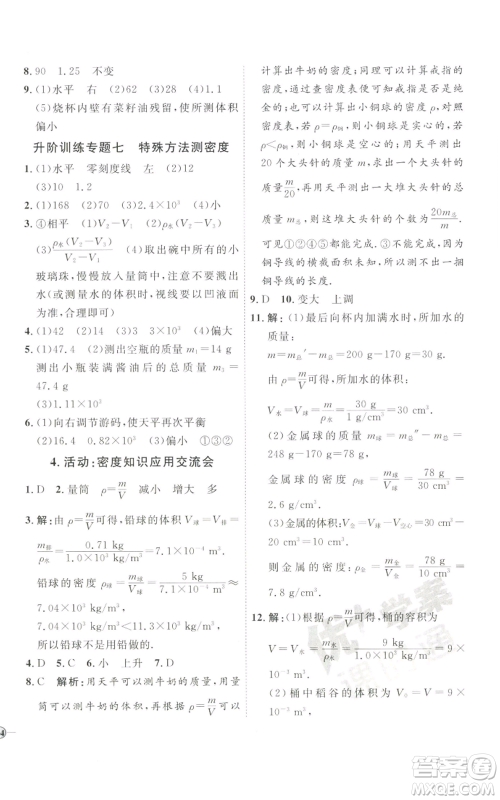 8. 90　1.25　不变
9. (1)水平　右　(2)62　(3)40　(4)1.25×10³
(5)烧杯内壁有菜籽油残留,使测体积
偏小
升阶训练专题七　特殊方法测密度
1. (1)水平　零刻度线　左　(2)12
(3)1.2×10³
3. ④相平　(1)V₂－V₁　(2)ρ水(V₂－V₃)
(3)ρ水(V₂－V₃)/V₁　(4)取出碗中所有的小
玻璃珠,慢慢放入量筒,直至加满(如需
测出水的体积时,视线要以凹液面
为准,合理即可)
5. (1)47.4　(2)测出空瓶的质量 m₁＝14 g
测出小瓶装满酱油后的总质量 m₃＝
47.4 g
6. (1)向右调节游码,使天平再次平衡
(2)16.4　0.82×10³　(3)偏小　①③②
4. 活动:密度知识应用交流会
1. D　2. 量筒　ρ＝m/V　减小　增大　多
3. 解:由 ρ＝m/V可得,铅球的体积 V球＝V排＝
m排/ρ水＝0.71 kg/1.0×10³ kg/m³＝7.1×10⁻⁴ m³
铅球的密度 ρ球＝m球/V球＝5 kg/7.1×10⁻⁴ m³≈
7.04×10³ kg/m³
7.04×10³ kg/m³＜11.3×10³ kg/m³
所以铅球不是纯铅做的.
4. D　5. C　6. 小　上升　7. D
8. C　解析:用天平可以测牛奶的质量,用
量筒可以测牛奶的体积,根据 ρ＝m/V可以
计算出牛奶的密度;同理可以计算戒指的密
度,通过查密度表可以鉴别戒指的真伪;用
天平和量筒可以测出小钢球的密度 ρ,对照
密度表,若 ρ＝ρ钢,则小钢球是实心的,若
ρ＜ρ钢,则小钢球是空心的;用天平测出
20个大头针的质量 m,则一个大头针的质
量为m/20,用天平测出一大堆大头针的总质
量 m总,则这堆大头针的个数为20m总/m.综合
分析,可以完成①②③④,不能完成⑤⑥,因
铜导线的横截面积未知,所以无法测量出
铜导线的长度.
9. D　10. 变大　上调
11. 解:(1)最后向杯内加满水时,所加水的
质量:
m＝m总′－m总＝200 g－170 g＝30 g
根据 ρ＝m/V可得,所加水的体积:
V水＝m水/ρ水＝30 g/1.0 g/cm³＝30 cm³
(2)金属球的质量 m球＝78 g
金属球的密度 ρ球＝m球/V球＝78 g/30 cm³＝
2.6 g/cm³
(3)金属的体积V金＝V球－V空心＝20 cm³
则金属的密度 ρ金＝m球/V金＝78 g/20 cm³＝
3.9 g/cm³
12. 解:(1)根据 ρ＝m/V可得,桶的容积为
V＝V水＝m水/ρ水＝9 kg/1.0×10³ kg/m³＝9×
10⁻³ m³
(2)桶中稻谷的体积 V谷＝V＝9×
10⁻³ m³